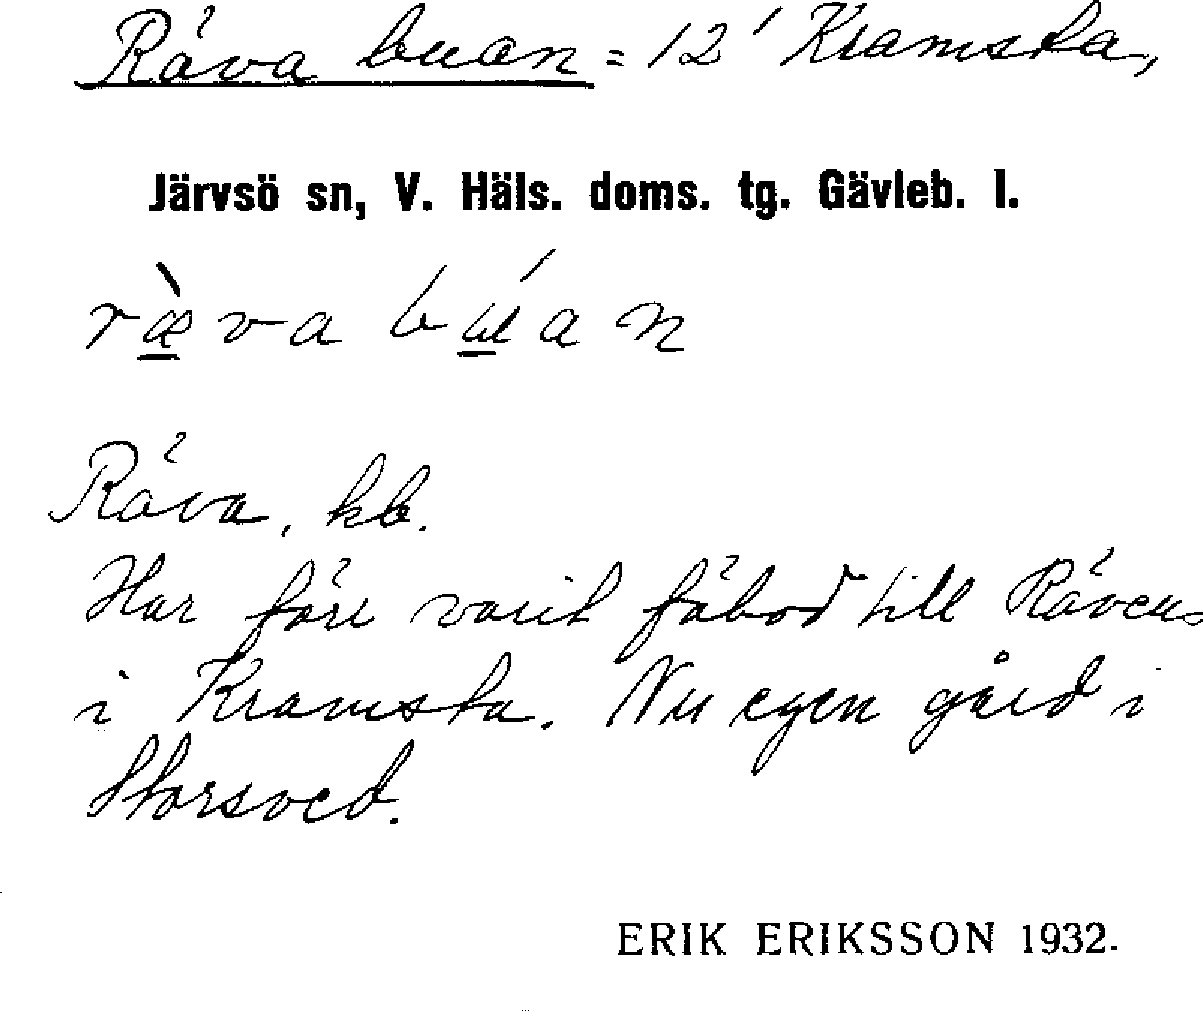 Räva buan = 12' Kramsta,
Järvsö sn, V. Häls. doms. tg. Gävleb. l.
ræ̀va bu̲áan
Räva, kb.
Har förr varit fäbod till Rävens
i Kramsta. Nu egen gård i
Storsved.
ERIK ERIKSSON 1932.